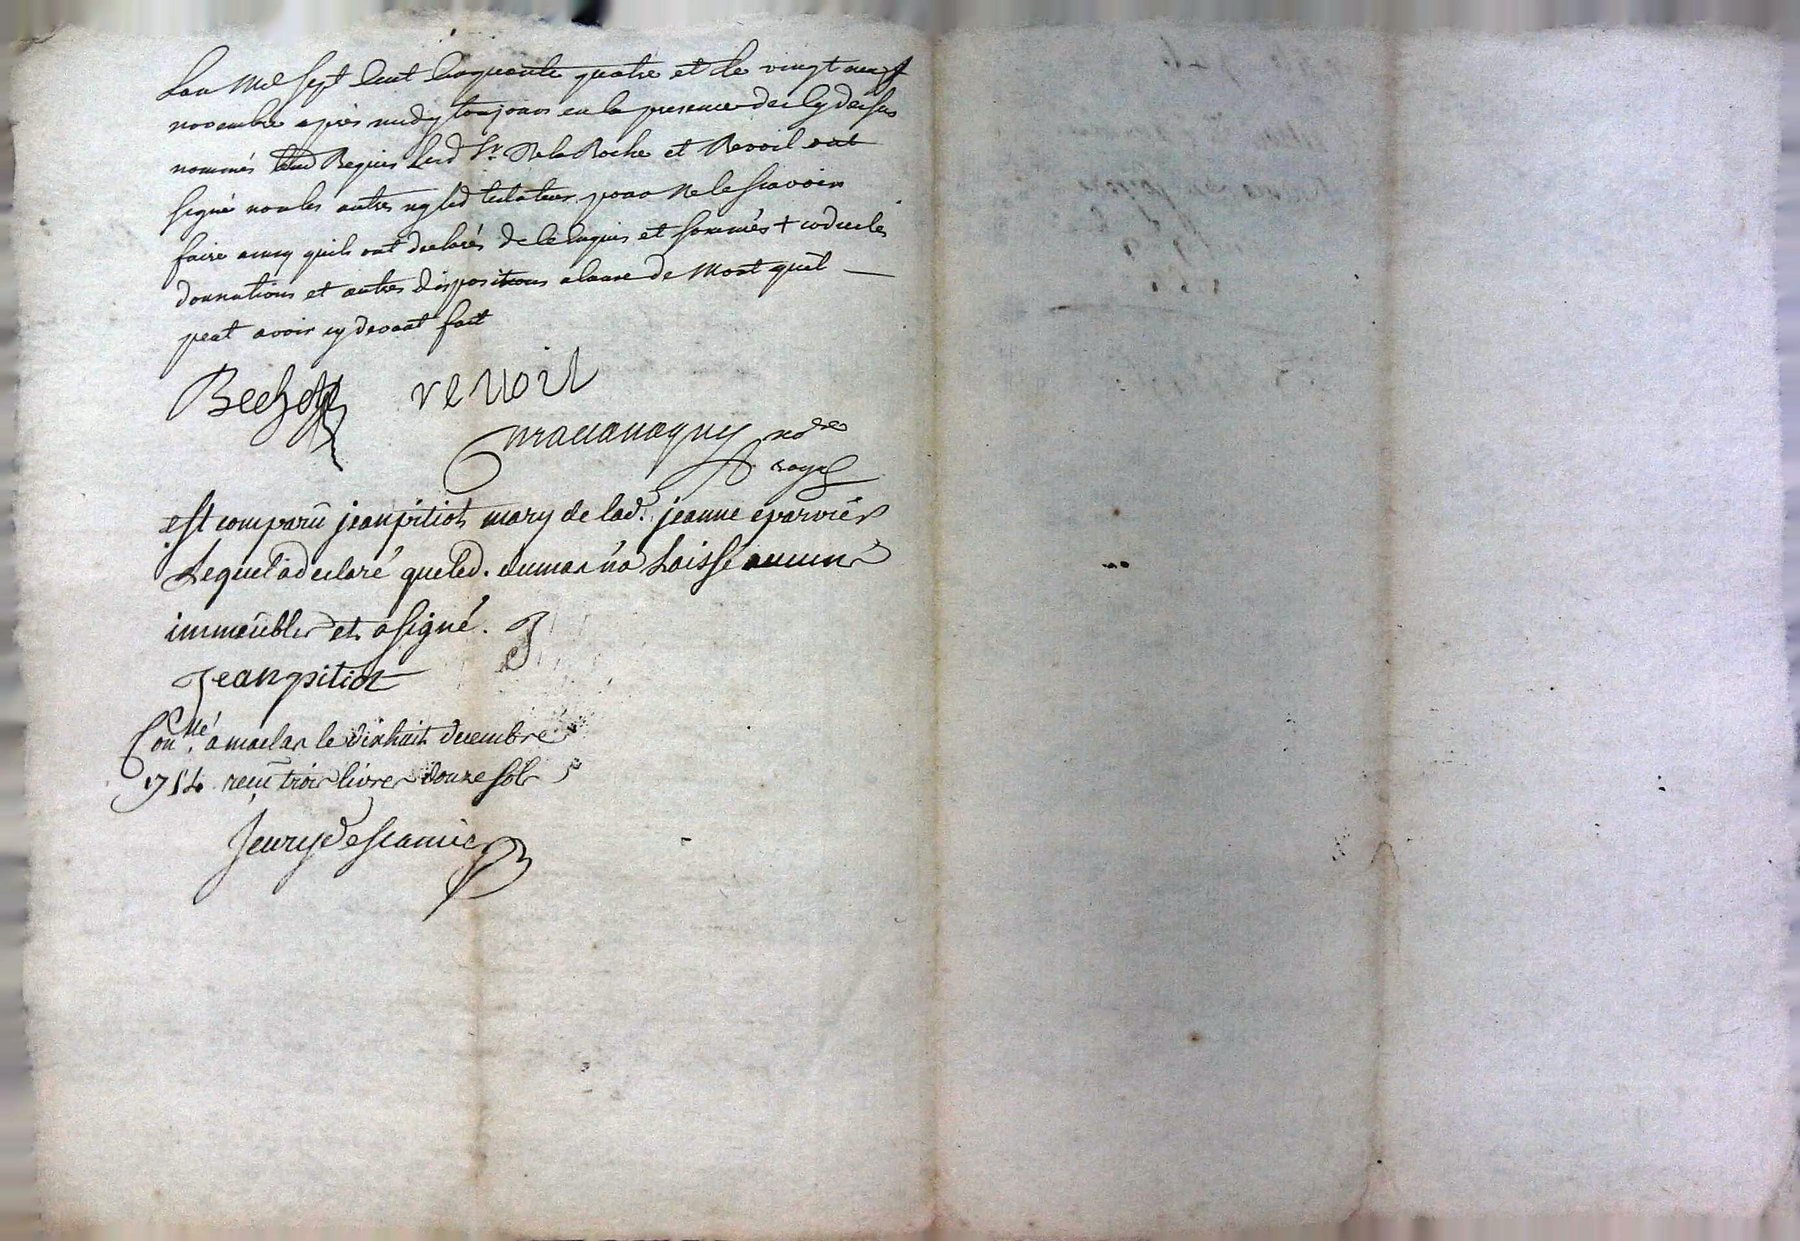 Lan mil sept cent cinquante quatre et le vingt neuf
novembre apres midy toujours en la presence des cy dessus
nommés Requis Led Sr Delaroche et Revoil ont
signé non les autres ny led testateur pour ne le scavoir
faire ainsy quils ont declarés de ce enquis et sommés + codicilés
donnations et autres dispositions a cause de mort quil
peut avoir cy devant fait
revoil
nore
royal
est comparü jean pitiot mary de lad. jeanne eparvier
Lequel a declaré que led. dumas na Laissé aucuns
immeübles et a signé.
Jean pitiot
Conllé a maclas le dixhuit decembre
1754 recü trois livres douze sols